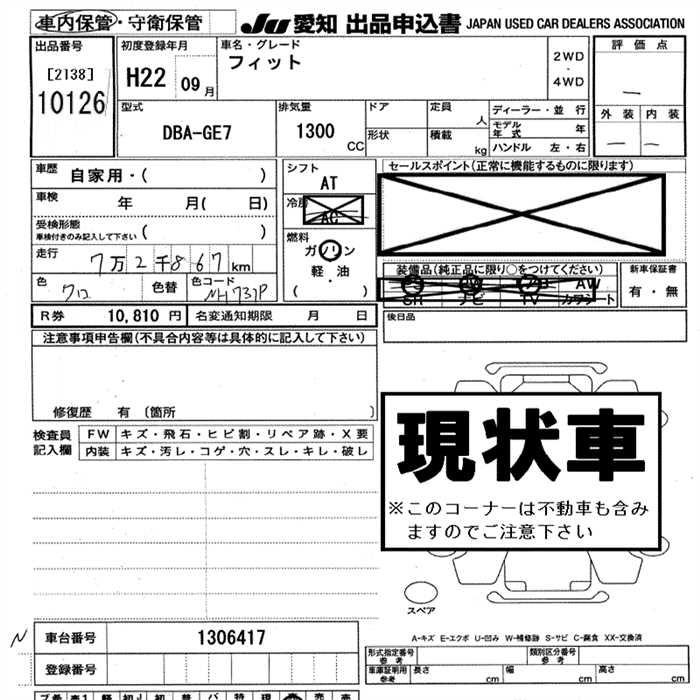 車内保管・守衛保管
JU 愛知 出品申込書 JAPAN USED CAR DEALERS ASSOCIATION
出品番号
[2138]
10126
初度登録年月
H22 09月
車名・グレード
フィット
2WD
・
4WD
評価点
—
外装 内装
— —
型式
DBA-GE7
排気量
1300
CC
ドア
定員
人
形状
積載
kg
ディーラー・並行
モデル年式 年
ハンドル 左・右
車歴
自家用・( )
車検
年 月( 日)
受検形態
車検付きのみ記入して下さい ( )
走行
7万2千867km
色
クロ
色替
色コード
NH731P
シフト
AT
冷房
AC
燃料
ガソリン
軽・油
( )
セールスポイント(正常に機能するものに限ります)
装備品(純正品に限り○をつけてください)
AW
SR ナビ TV カワシート
新車保証書
有・無
R券 10,810 円
名変通知期限 月 日
後日品
注意事項申告欄(不具合内容等は具体的に記入して下さい)
修復歴 有 〔箇所 〕
検査員
記入欄
FW キズ・飛石・ヒビ割・リペア跡・X要
内装 キズ・汚レ・コゲ・穴・スレ・キレ・破レ
現状車
※このコーナーは不動車も含み
ますのでご注意下さい
スペア
A-キズ E-エクボ U-凹み W-補修跡 S-サビ C-腐食 XX-交換済
N
車台番号
1306417
登録番号
型式指定番号
参考
類別区分番号
参考
車庫証明用
参考
長さ cm
幅 cm
高さ cm